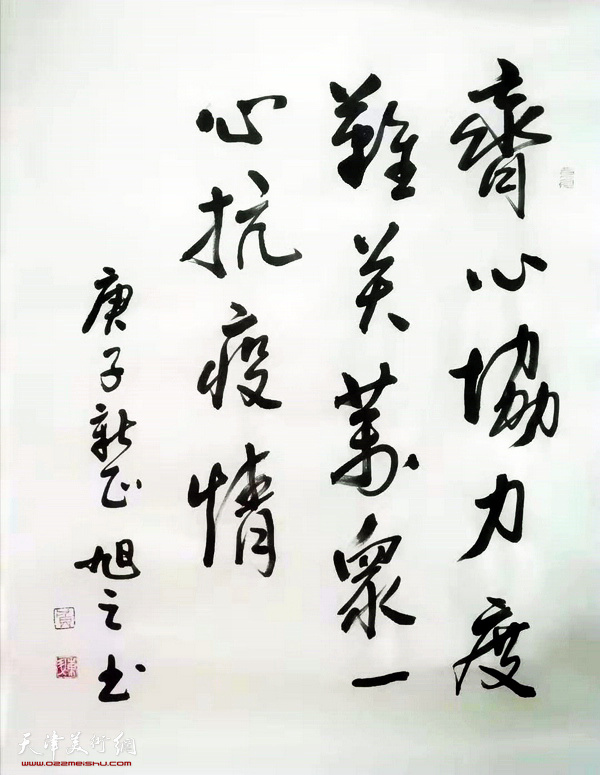 齊心協力度
難关萬衆一
心抗疫情
庚子新正 旭之书
天津美術網
www.022meishu.com